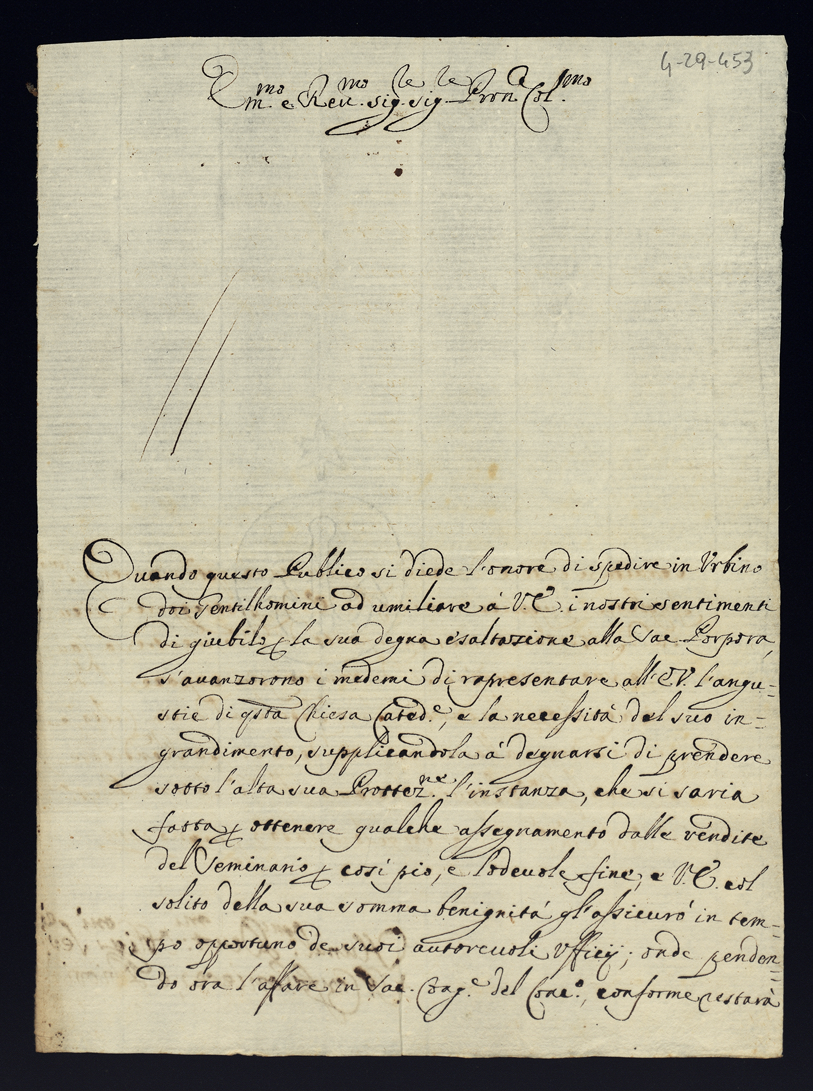 4-29-453
Em.mo e Rev.mo sig.re sig.re Pron.e Col.mo
Quando questo Publico si diede l'onore di spedire in Urbino
doi Gentilhomini ad umiliare à V.E. i nostri sentimenti
di giubilo p la sua degna esaltazione alla Sac. Porpora,
s'avanzorono i medemi di rapresentare all'E.V. l'angu=
stie di q.sta Chiesa Cated.e, e la necessità del suo in=
grandimento, supplicandola à degnarsi di prendere
sotto l'alta sua Prottez.ne l'instanza, che si saria
fatta p ottenere qualche assegnamento dalle rendite
del Seminario p così pio, e lodevole fine, e V.E. col
solito della sua somma benignità gl'assicurò in tem=
po opportuno de suoi autorevoli Ufficij; onde penden=
do ora l'affare in Sac. Cong.e del Conc.o, conforme restarà